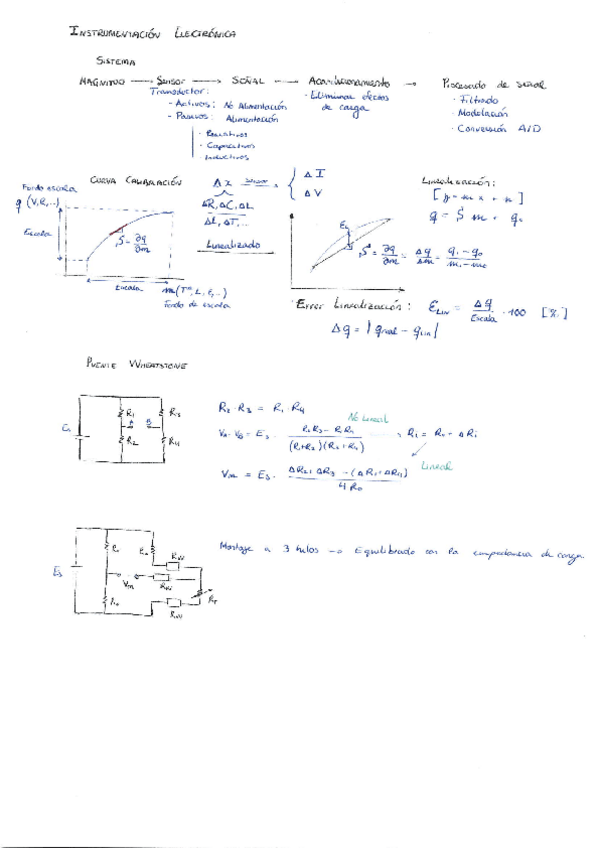 INSTRUMENTACIÓN ELECTRÓNICA
SISTEMA
MAGNITUD → Sensor → SEÑAL → Acondicionamiento → Procesado de señal
Transductor:
- Activos: No Alimentación
- Pasivos: Alimentación
· Resistivos
· Capacitivos
· Inductivos
· Eliminar efectos de carga
· Filtrado
· Modulación
· Conversión A/D
CURVA CALIBRACIÓN
Fondo escala
q (V, R, ...)
Escala
S = ∂q/∂m
Escala
m (Tª, L, ε, ...)
Fondo de escala
Δx
ΔR, ΔC, ΔL
ΔL, ΔT, ...
Linealizado
ΔI
ΔV
E
S = ∂q/∂m = Δq/Δm = (q₁ - q₀)/(m₁ - m₀)
Linealización:
[y = m x + n]
q = S m + q₀
Error Linealización: ε LIN = Δq/Escala · 100 [%]
Δq = |q real - q lin|
PUENTE WHEATSTONE
Es
R₁
R₃
A
B
R₂
R₄
R₂ · R₃ = R₁ R₄
No Lineal
VA - VB = Es · (R₂R₃ - R₁R₄)/((R₁+R₂)(R₃+R₄)) , Ri = R₀ + ΔRi
Lineal
Vm = Es · (ΔR₂ + ΔR₃ - (ΔR₁ + ΔR₄))/4R₀
Es
R₀
R₀
Vm
R₀
RT
Montaje a 3 hilos → Equilibrado con la impedancia de carga.